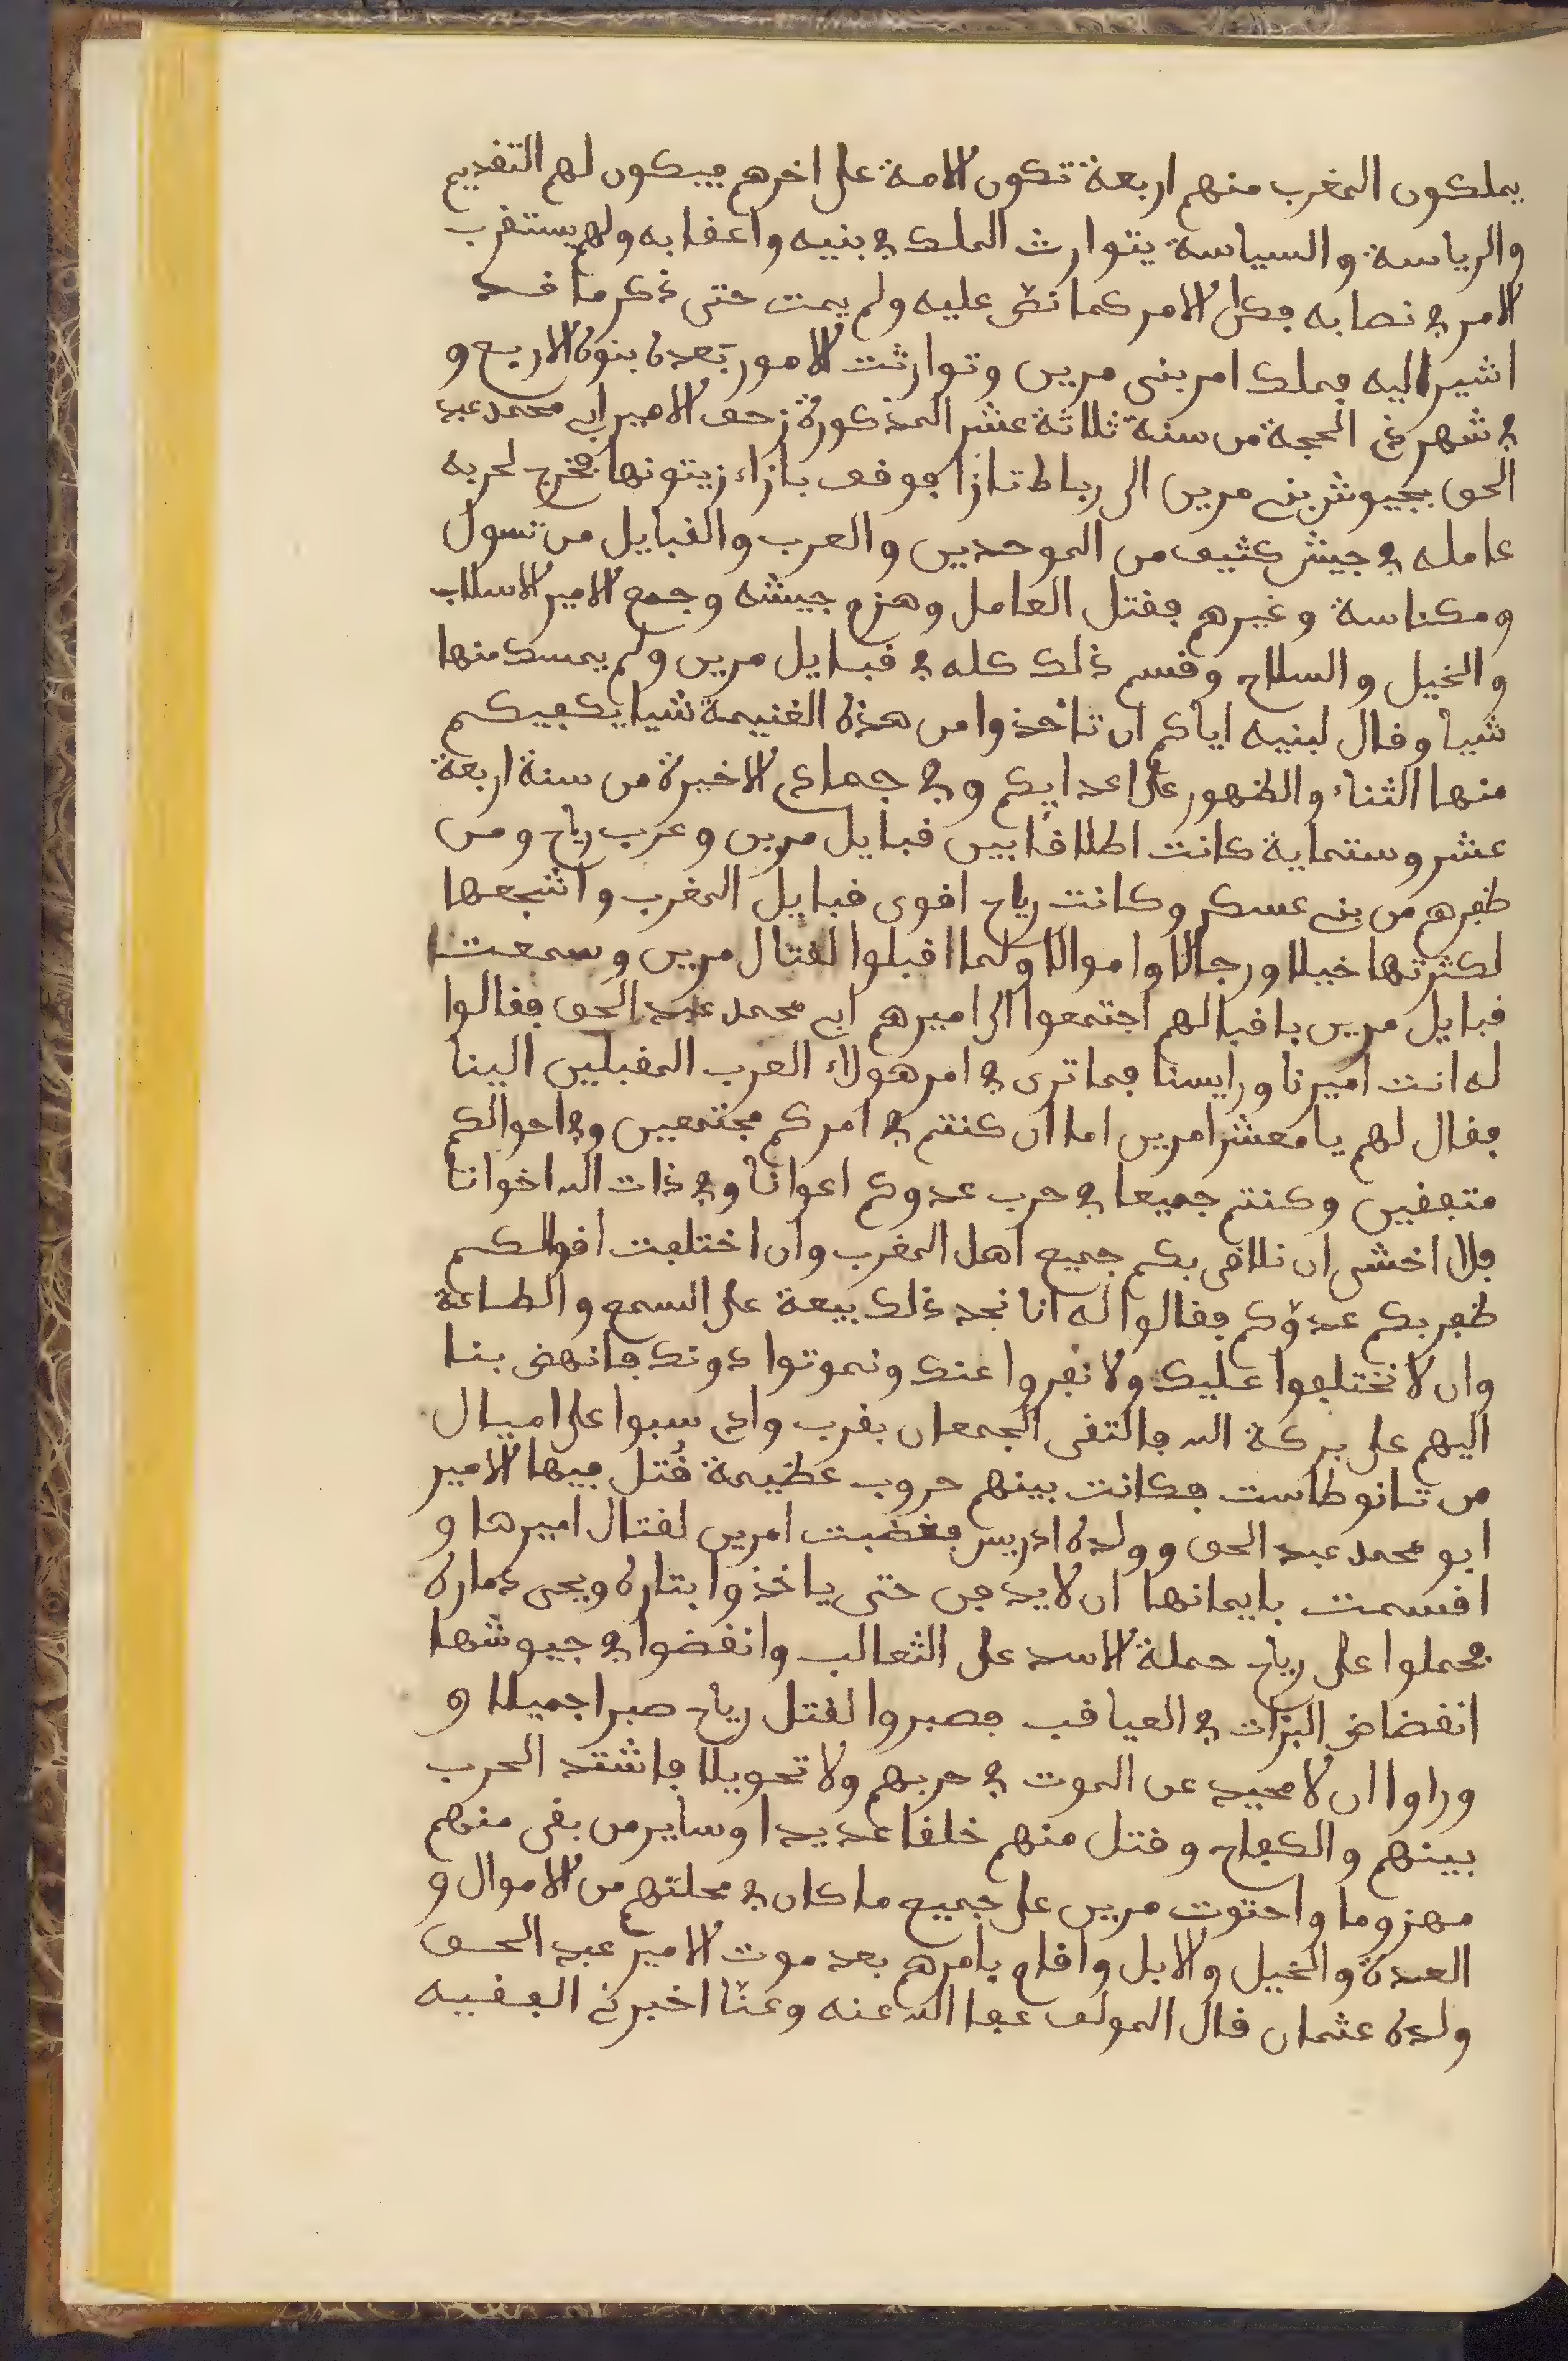 يملكون المغرب منهم اربعة تكون الامة على اخرهم فيكون لهم التقديم
والرياسة والسياسة يتوارث الملك في بنيه واعقابه ولهم يستقرب
الامر في نصابه فكان الامر كما نص عليه ولم يمت حتى ذكر ما قد
اشير اليه فملك امر بنى مرين وتوارثت الامور بعده بنوه الاربع و
في شهر ذي الحجة من سنة ثلاثة عشر المذكورة زحف الامير ابي محمد عبد
الحق بجيوش بني مرين الى رباط تازا فوقف بازاء زيتونها فخرج لحربه
عامله في جيش كثيف من الموحدين والعرب والقبايل من تسول
ومكناسة وغيرهم فقتل العامل وهزم جيشه وجمع الامير الاسلاب
والخيل والسلاح وقسم ذلك كله في قبايل مرين ولم يمسك منها
شيا وقال لبنيه اياكم ان تاخذوا من هذه الغنيمة شيا يكفيكم
منها الثناء والظهور على اعدايكم وفي جمادى الاخيرة من سنة اربعة
عشر وستماية كانت اطلاقا بين قبايل مرين وعرب رياح ومن
ظفرهم من بني عسكر وكانت رياح اقوى قبايل المغرب واشجعها
لكثرتها خيلا ورجالا واموالا ولما اقبلوا لقتال مرين وسمعت
قبايل مرين باقبالهم اجتمعوا الى اميرهم ابي محمد عبد الحق فقالوا
له انت اميرنا ورايسنا فما ترى في امر هولاء العرب المقبلين الينا
فقال لهم يا معشر امرين اما ان كنتم في امركم مجتمعين وفي احوالكم
متفقين وكنتم جميعا في حرب عدوكم اعوانا وفي ذات الله اخوانا
فلا اخشى ان نلاقى بكم جميع اهل المغرب وان اختلفت اقوالكم
ظفر بكم عدوّكم فقالوا له انا نجد ذلك بيعة على السمع والطاعة
وان لا نختلفوا عليك ولا نفروا عنك ونموتوا دونك فانهض بنا
اليهم على بركة الله فالتقى الجمعان بقرب وادي سبوا على اميال
من تانوطاست فكانت بينهم حروب عظيمة قُتل فيها الامير
ابو محمد عبد الحق وولده ادريس فغضبت امرين لقتال اميرها و
اقسمت بايمانها ان لا يدفن حتى ياخذوا بتاره ويحى ذماره
فحملوا على رياح حملة الاسد على الثعالب وانقضوا في جيوشها
انقضاض البزات في العياقب فصبروا لقتل رياح صبرا جميلا و
وراوا ان لا محيد عن الموت في حربهم ولا تحويلا فاشتد الحرب
بينهم والكفاح وقتل منهم خلقا عديدا وساير من بقى منهم
مهزوما واحتوت مرين على جميع ما كان في محلتهم من الاموال و
العدة والخيل والابل واقام بامرهم بعد موت الامير عبد الحق
ولده عثمان قال المولف عفا الله عنه وعنّا اخبرني الفقيه